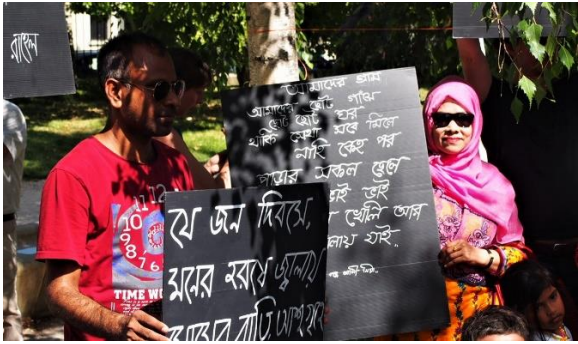 আমাদের গ্রাম
আমাদের ছোট গাঁয়
ছোট ছোট ঘর
থাকি সেথা সবে মিলে
নাহি কেহ পর
পাড়ার সকল ছেলে
ভাই ভাই
খেলি আর
লায় যাই..
যে জন দিবসে,
মনের হরষে জ্বালায়
মোমের বাতি, আশু গৃহে
11 12
10
9
8
7 6
TIME WO